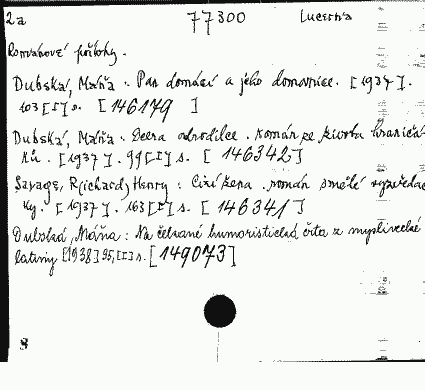 2a 77300 Lucerna
Románové přílohy.
Dubská, Máňa. Pan domácí a jeho domovnice. [1937].
103 [I] s. [146179]
Dubská, Máňa. Dcera odrodilce. Román ze života hraničá-
řů. [1937]. 99 [I] s. [146342]
Savage, R(ichard) Henry: Cizí žena. román smělé
ky. [1937]. 163 [I] s. [146341]
Dubská, Máňa: Na čekané humoristická črta z myslivecké
latiny [1938] 95, [I] s. [149073]
8